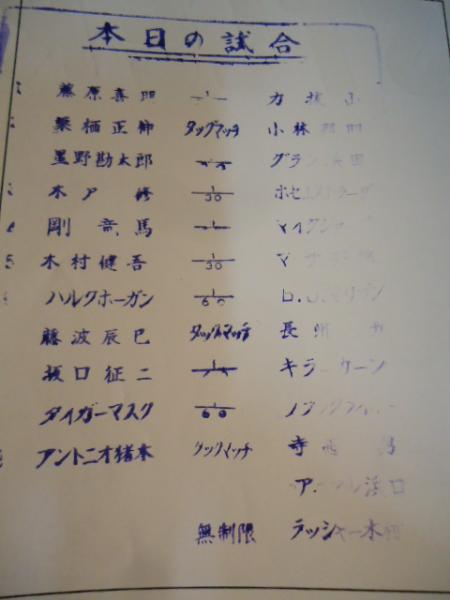 本日の試合
藤原喜明 力抜山
栗栖正伸 タッグマッチ 小林邦明
星野勘太郎 グラン浜田
木戸修 1/30 ホセ
剛竜馬 マイク
木村健吾 1/30 マサ
ハルクホーガン 1/60
藤波辰巳 タッグマッチ 長州力
坂口征二 キラーカーン
タイガーマスク 1/60 ブラックタイガー
アントニオ猪木 タッグマッチ 寺西勇
アニマル浜口
無制限 ラッシャー木村